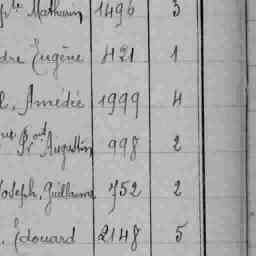 Mathurin 1496 3
dre Eugène 421 1
l. Amédée 1999 4
Augustin 998 2
Joseph, Guillaume 752 2
Edouard 2148 5